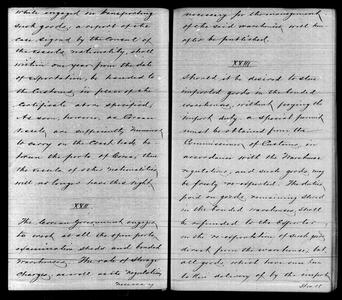 while engaged in transporting
such goods, a report of the
case signed by the Consul of
the vessels nationality, shall
within one year from the date
of exportation, be handed to
the Customs, in place of the
Certificate above specified.
As soon, however, as Corean
vessels are sufficiently numerous
to carry on the Coast trade be-
tween the ports of Corea, then
the vessels of other nationalities
will no longer have this right.
XXII
The Corean Government engages
to erect at all the open ports
examination sheds and bonded
Warehouses. The rate of Storage
Charges, as well as the regulations
necessary
necessary for the management
of the said warehouses will here-
after be published.
XXIII
Should it be desired to store
imported goods in the bonded
warehouses, without paying the
import duty a special permit
must be obtained from the
Commissioner of Customs, in
accordance with the Warehouse
regulations, and such goods may
be freely re-exported. The duties
paid on goods, remaining stored
in the bonded warehouses, shall
be refunded to the Exporter
on the re-exportation of such goods
direct from the warehouse, but
all goods which have once been
taken delivery of by the importer
Shall